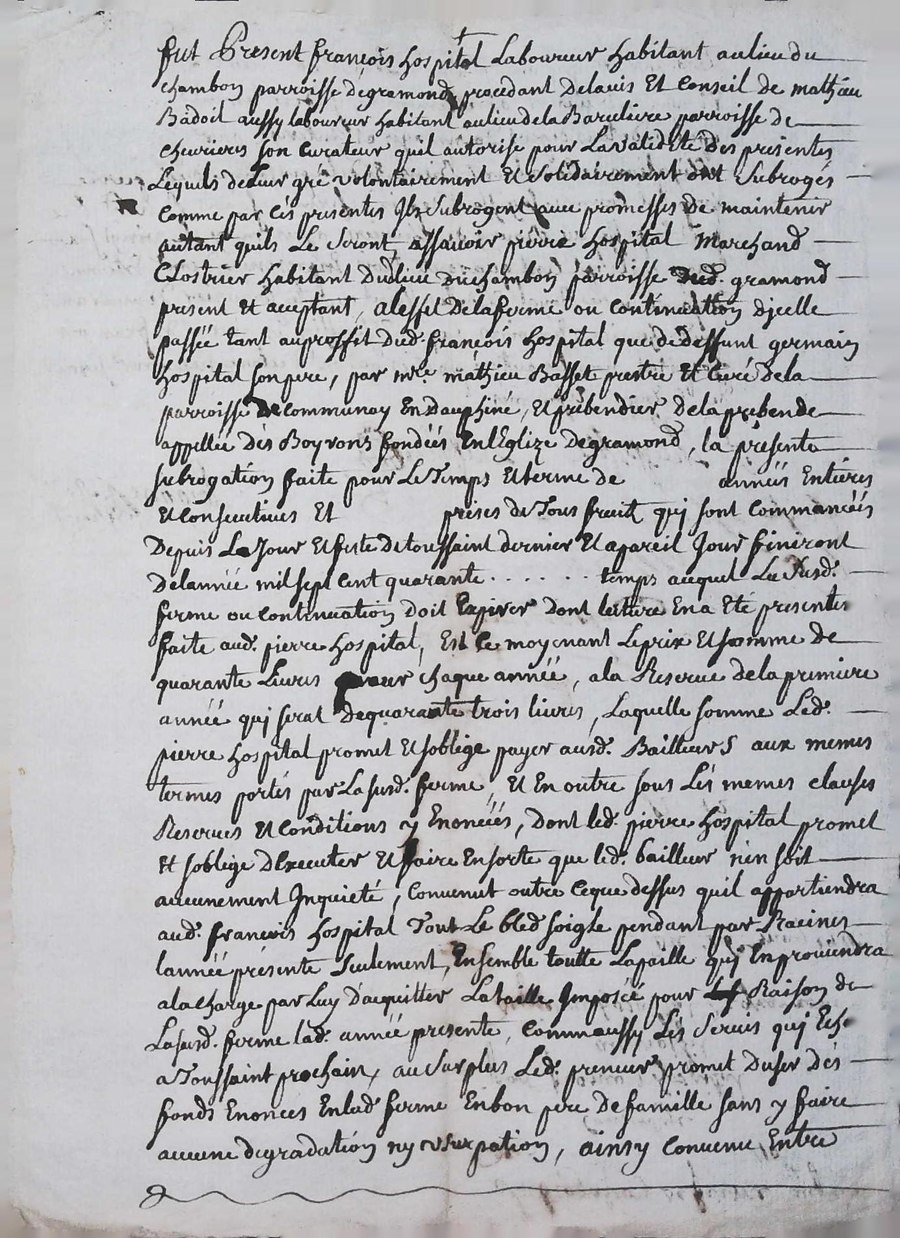 fut Present françois hospital Laboureur habitant aulieu du
chambon parroisse degramond, procedant delavis Et Conseil de mathieu
Badoil aussy laboureur habitant aulieudela Baruliere parroisse de
chevrieres son curateur quil autorise pour Lavalidité des presentes
Lequels deleur gré volontairement Et solidairement ont Subrogés
Comme par Cés presentes Ils Subrogent avec promesses de maintenir
autant quils Le Seront assavoir pierre hospital Marchand
Clostrier habitant Dudlieu duchambon parroisse dud. gramond
present Et aceptant, aleffet Delaferme ou continuation djcelle
passée tant auproffit Dud. françois hospital que dedeffunt germain
hospital sonpere, par mre. mathieu Basset prestre Et Curé Dela
parroisse De Communay En dauphiné, Et prebendier delaprebende
appellée Dés Boyrons fondées EnlEglize Degramond, la présente
subrogation faite pour Le Temps Et terme de années Entieres
Et Consecutives Et prises de Tous fruit qui sont Commancéés
Depuis Le Jour Et feste De toussaint dernier Et apareil Jour finiront
Delannée mil sept cent quarante . . . . . . . temps auquel La Susd.
ferme ou continuation doit Expirer dont lecture En a Eté presentes
faite aud. pierre hospital, Est Ce moyenant Leprix Et somme de
quarante Livres pour chaque année, ala Reserve delapremiere
année qui serat Dequarante trois livres, Laquelle somme Led.
pierre hospital promet Et soblige payer ausd. Bailleurs aux memes
termes portés par Lasusd. ferme, Et En outre sous Lés memes clauses
Reserves Et Conditions y Enoncéés, Dont led. pierre hospital promet
Et soblige DExecuter Et faire Ensorte que led. bailleur nen soit
aucunement Inquieté, Convenut outre Ceque dessus quil appartiendra
aud. françois hospital Tout Le bled soigle pendant par Racines
lannée présente seulement, Ensemble toutte Lapaille qui En proviendra
alacharge par Luy Dacquitter Lataille Imposéé pour Raison de
Lasusd. ferme lad. année presente, Comm aussy Lés Servis qui Ech.
a Toussaint prochain, au Surplus Led. preneur promet Duser dés
fonds Enoncés Enlad. ferme Enbon pere Defamille sans y faire
aucune degradation ny usurpation, ainsy Convenu Entre